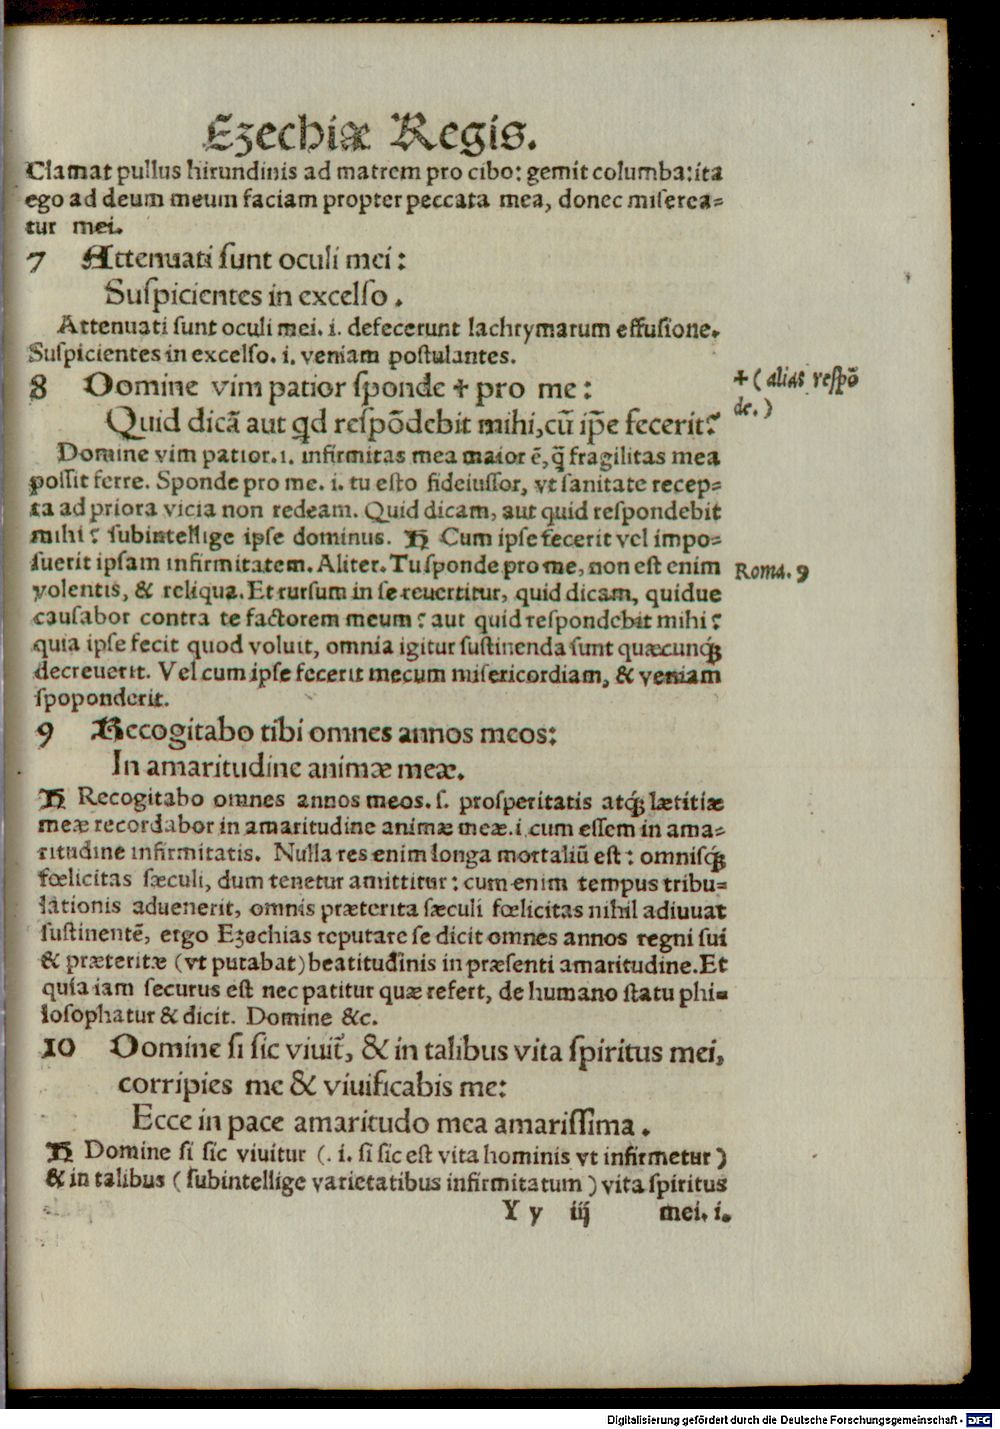 Ezechiæ Regis.
Clamat pullus hirundinis ad matrem pro cibo: gemit columba: ita
ego ad deum meum faciam propter peccata mea, donec miserea=
tur mei.
7 Attenuati sunt oculi mei:
Suspicientes in excelso.
Attenuati sunt oculi mei. i. defecerunt lachrymarum effusione.
Suspicientes in excelso. i. veniam postulantes.
8 Domine vim patior sponde + pro me:
+ ( alias respõ
de. )
Quid dicã aut qd respõdebit mihi, cũ ip̃e fecerit?
Domine vim patior. i. infirmitas mea maior ẽ, q̃ fragilitas mea
possit ferre. Sponde pro me. i. tu esto fideiussor, vt sanitate recep=
ta ad priora vicia non redeam. Quid dicam, aut quid respondebit
mihi? subintellige ipse dominus. H Cum ipse fecerit vel impo=
suerit ipsam infirmitatem. Aliter. Tu sponde pro me, non est enim
Roma. 9
volentis, & reliqua. Et rursum in se reuertitur, quid dicam, quidue
causabor contra te factorem meum? aut quid respondebit mihi?
quia ipse fecit quod voluit, omnia igitur sustinenda sunt quæcunq;
decreuerit. Vel cum ipse fecerit mecum misericordiam, & veniam
spoponderit.
9 Recogitabo tibi omnes annos meos:
In amaritudine animæ meæ.
H Recogitabo omnes annos meos. s. prosperitatis atq; lætitiæ
meæ recordabor in amaritudine animæ meæ. i. cum essem in ama=
ritudine infirmitatis. Nulla res enim longa mortaliũ est: omnisq;
fœlicitas sæculi, dum tenetur amittitur: cum enim tempus tribu=
lationis aduenerit, omnis præterita sæculi fœlicitas nihil adiuuat
sustinentẽ, ergo Ezechias reputare se dicit omnes annos regni sui
& præteritæ (vt putabat) beatitudinis in præsenti amaritudine. Et
quia iam securus est nec patitur quæ refert, de humano statu phi=
losophatur & dicit. Domine &c.
10 Domine si sic viuit̃, & in talibus vita spiritus mei,
corripies me & viuificabis me:
Ecce in pace amaritudo mea amarissima.
H Domine si sic viuitur (. i. si sic est vita hominis vt infirmetur)
& in talibus (subintellige varietatibus infirmitatum) vita spiritus
Y y iij mei. i.
Digitalisierung gefördert durch die Deutsche Forschungsgemeinschaft - DFG